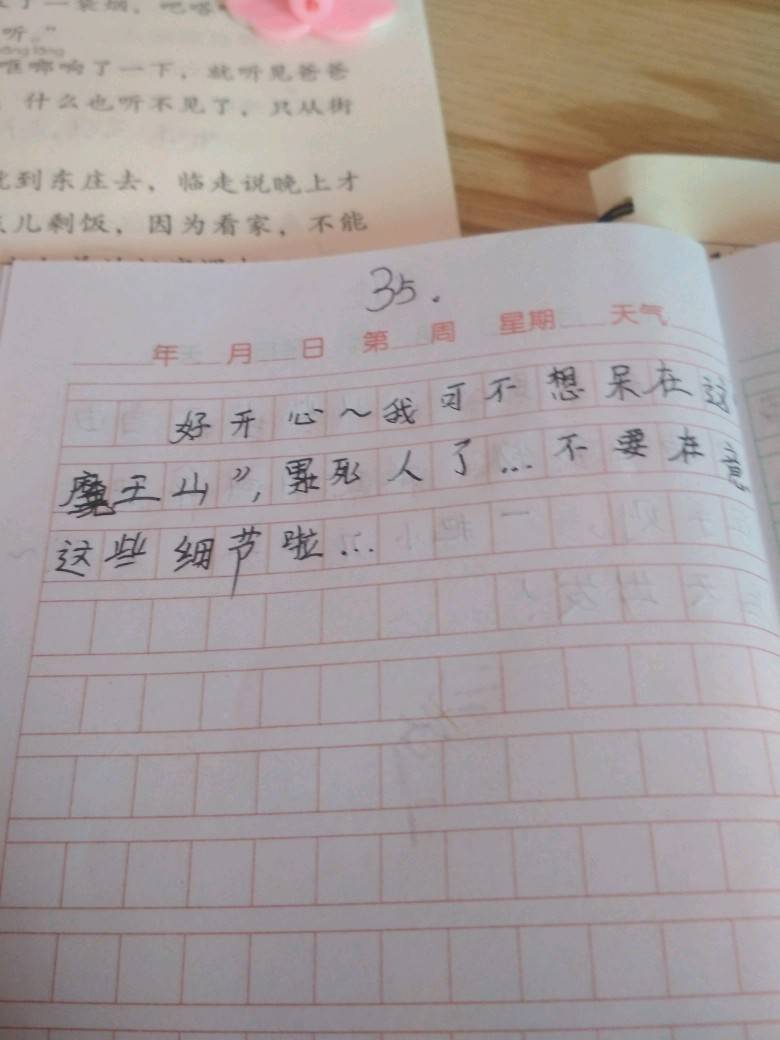 了一袋烟，吧嗒
听。”
哪响了一下，就听见爸爸
什么也听不见了，只从街
到东庄去，临走说晚上才
儿剩饭，因为看家，不能
35.
年 月 日 第 周 星期 天气
好开心～我可不想呆在这
魔王山”，累死人了...不要在意
这些细节啦...